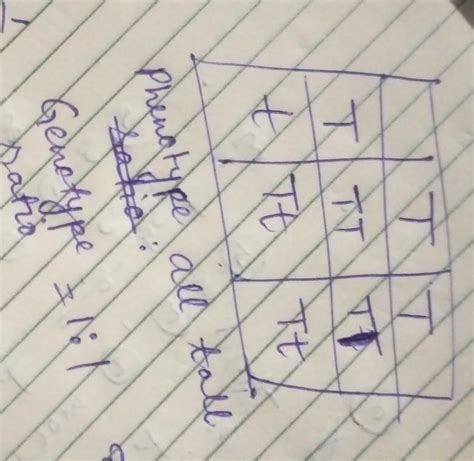 T T
T TT TT
t Tt Tt
Phenotype : all tall
Genotype = 1:1
ratio